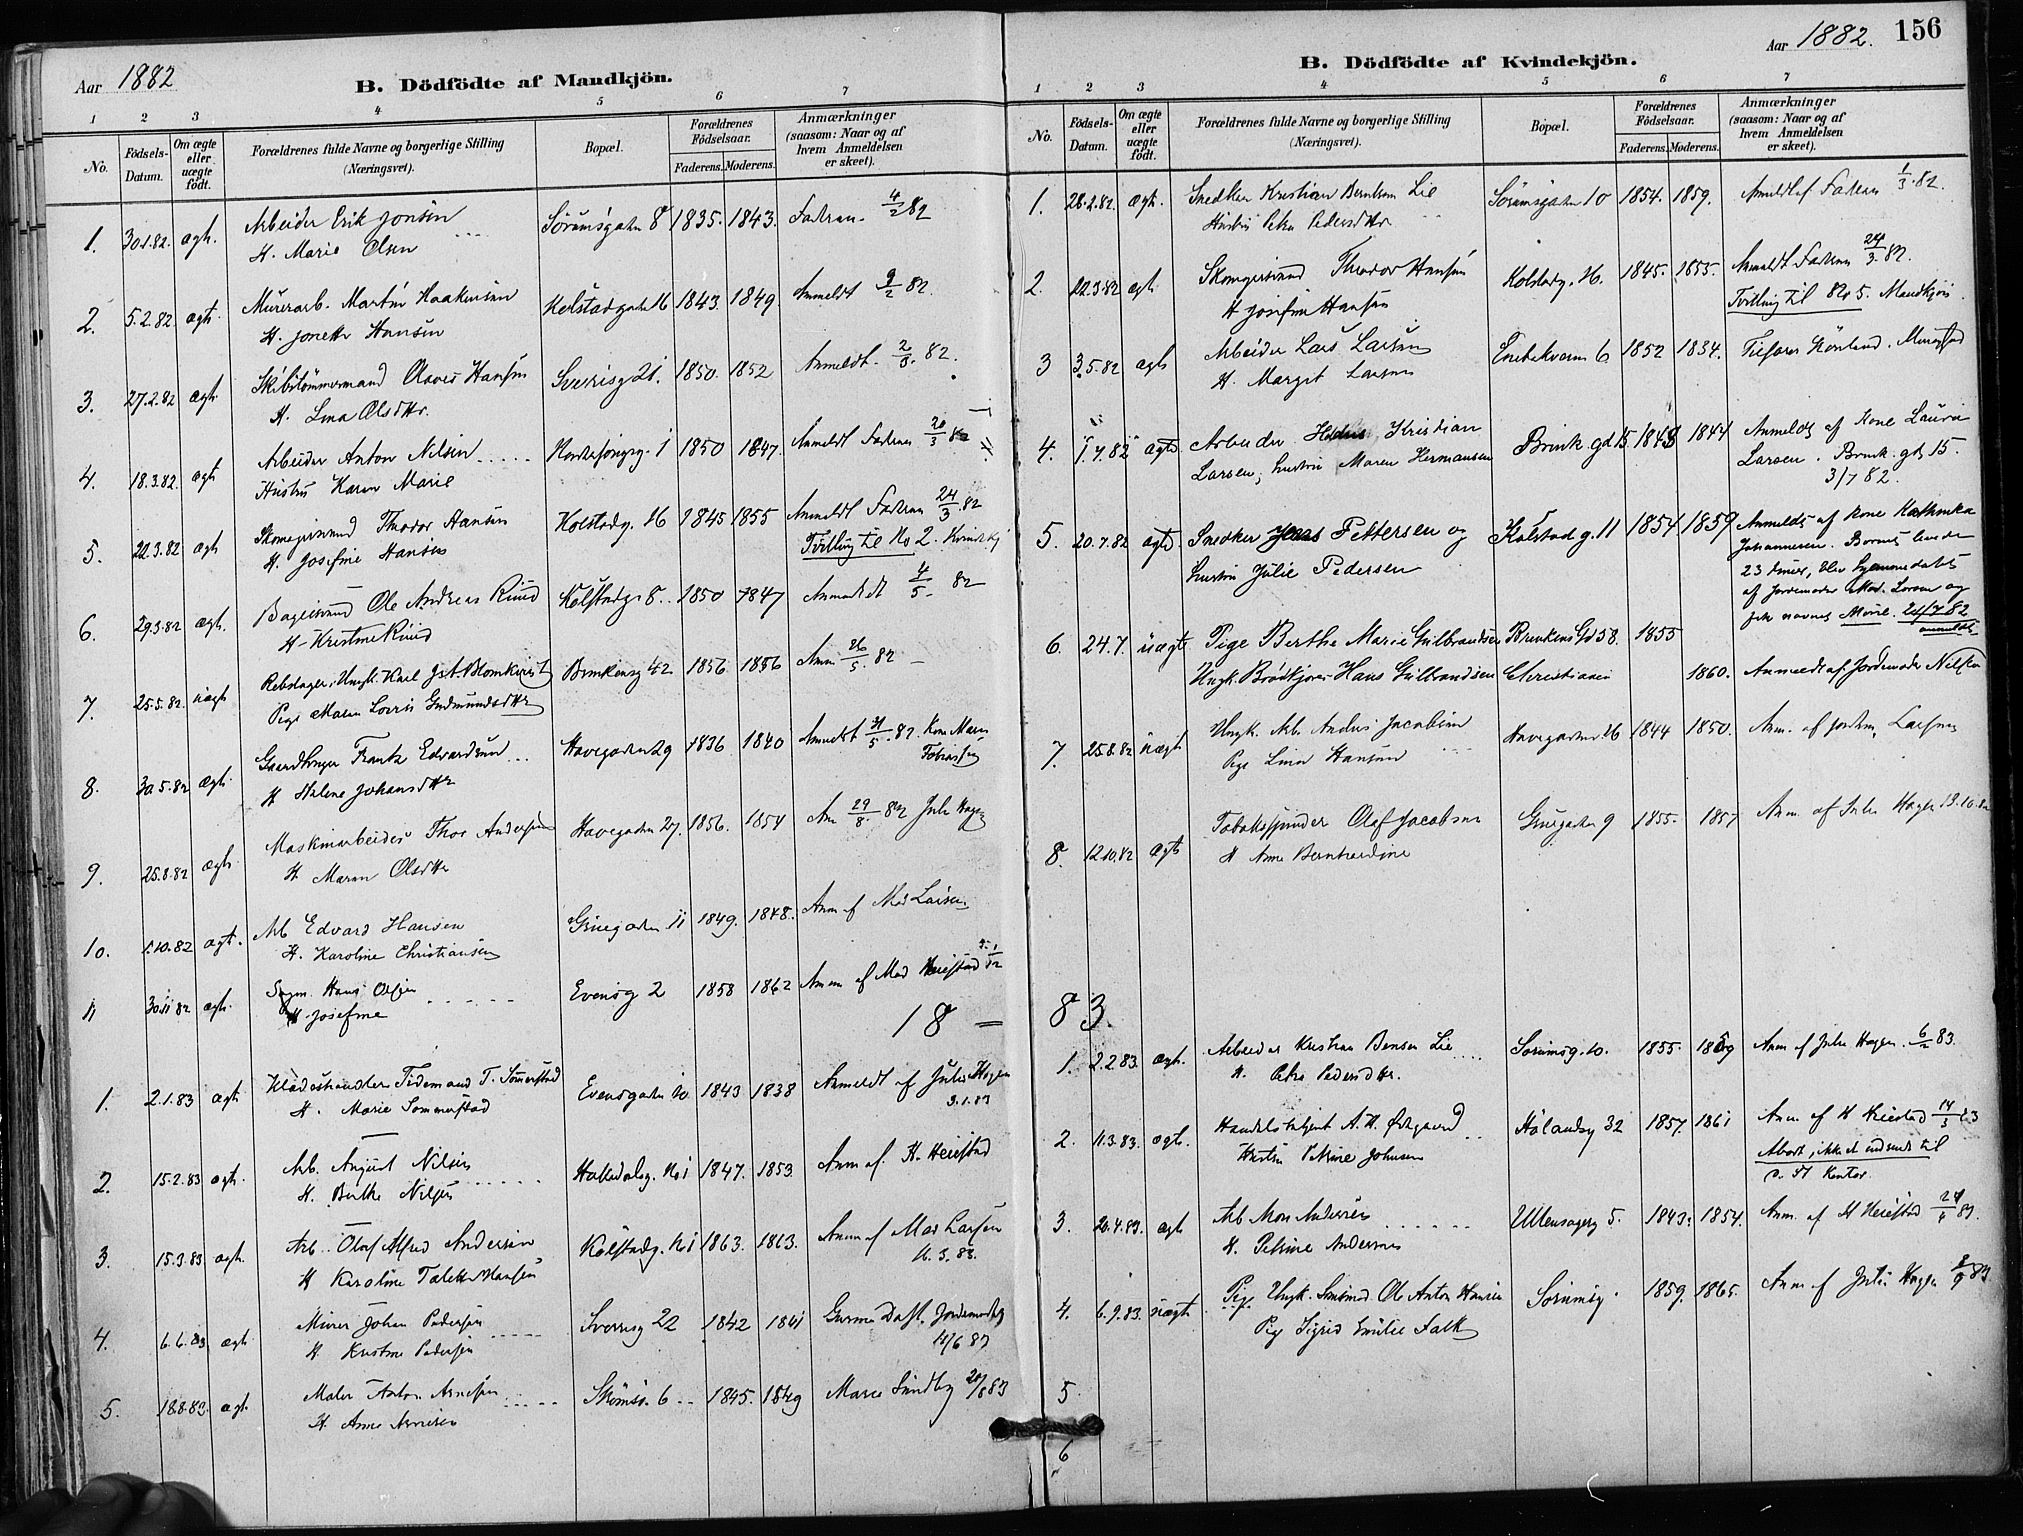 Aar 1882
B. Dödfödte af Mandkjön.
1 2 3 4 5 6 7
No. Födsels-Datum. Om ægte eller uægte födt. Forældrenes fulde Navne og borgerlige Stilling (Næringsvei). Bopæl. Forældrenes Födselsaar. Faderens. Moderens. Anmærkninger (saasom: Naar og af hvem Anmeldelsen er skeet).
1. 30.1.82. ægte Arbeider Erik Jonsen Sörumsgaten 8 1835. 1843. Faderen 4/2 82
H. Marie Olsen
2. 5.2.82. ægte Murerarb. Martin Haakensen Kolstadgaten 16 1843. 1849. Anmeldt 9/2 82.
H. Jonette Hansen
3. 27.2.82 ægte Skibstömmermand Olaves Hansen Sverresg 21. 1850. 1852 Anmeldt 2/3. 82.
H. Lina Olsdtr.
4. 18.3.82. ægte Arbeider Anton Nilsen 1850 1847. Anmeldt Faderen 20/3 82
Hustru Karen Marie
5. 22.3.82 ægte Skomagersvend Theodor Hansen Kolstadg. 16 1845 1855 Anmeldt Faderen 24/3 82
H. Josefine Hansen Tvilling til No 2. Kvindekj
6. 29.3.82 ægte. Bagersvend Ole Andreas Ruud Kolstadg. 8 1850 1847 Anmeldt 4/5 82
H. Kristine Ruud
7. 25.5.82. uægte Rebslager, Ungk. Karl Gst. Blomkvist Brinkensg 42 1856. 1856 Anm 26/5. 82
Pige Maren Lovise Gudmundsdtr
8. 30.5.82 ægte Frantz Edvardsen Havegaden 29 1836 1840 Anmeldt 31/5. 82. Kone Maren
H. Helene Johansdtr Tobiassen
9. 25.8.82 ægte Maskinarbeider Thor Andersen Havegaden 27. 1856. 1854 Anm 29/8 82 Julie Hagen
H. Maren Olsdtr
10. 1.10.82 ægte. Arb Edvard Hansen Gruegaden 11 1849. 1848. Anm af Mad Larsen
H. Karoline Christiansen
11 30.11 82 ægte Hans Olsen Evensg 2 1858 1862 Anm af Mad Heiestad 1/12
H. Josefine
18
1. 2.1.83 ægte Klædeshandler Tidemand T. Sommerstad Evensgaden 10 1843 1838 Anmeldt af Julie Hagen
H. Marie Sommerstad 3.1.83
2. 15.2.83 ægte. Arb. August Nilsen No 1 1847. 1853 Anm af. H. Heiestad
H. Berthe Nilsen
3. 15.3.83 ægte. Arb. Oluf Alfred Andersen Kolstadg. No 1 1863. 1863. Anm af Mad Larsen
H Karoline Hansen 16.3.83.
4. 6.6.83 ægte Murer Johan Pedersen Sverresg 22 1842 1841 Jordemoder
H Kristine Pedersen
5. 18.8.83. ægt. Maler Anton Arnesen 6 1845. 1849 Marie Sundby 20/8 83
H. Anne Arnesen
Aar 1882. 156
B. Dödfödte af Kvindekjön.
1 2 3 4 5 6 7
No. Födsels-Datum. Om ægte eller uægte födt. Forældrenes fulde Navne og borgerlige Stilling (Næringsvei). Bopæl. Forældrenes Födselsaar. Faderens. Moderens. Anmærkninger (saasom: Naar og af hvem Anmeldelsen er skeet).
1. 28.2.82. ægte. Snedker Kristian Berntsen Lie Sörumsgaten 10 1854. 1859. Anmeldt af Faderen 1/3. 82.
Hustru Petra Pedersdtr
2. 22.3.82 ægte Skomagersvend Theodor Hansen Kolstadg. 16. 1845. 1855. Anmeldt Faderen 24/3 82.
H Josefine Hansen Tvilling til No 5. Mandkjön
3 3.5.82 ægte Arbeider Lars Larsen Enebakveien 6 1852 1834.
H. Margit Larsen
4. 1.7.82 ægte Arbeider Kristian Brink. gd 15 1848 1844 Anmeldt af Kone Laura
Larsen, hustru Maren Hermansen Larsen. Brink. gd 15.
3/7 82.
5. 20.7.82 ægte. Snedker Jens Pettersen og Kolstad g. 11 1854 1859 Anmeldt af Kone Kathinka
hustru Julie Pedersen Johannesen. Barnet levede
23 timer, blev hjemmedøbt
af Jordemoder Mad. Larsen og
fik navnet Marie. 24/7 82
anmeldt
6. 24.7. uægte Pige Berthe Marie Gulbrandsen Brinkens Gd 58. 1855
Ungk. Brödkjører Hans Gulbrandsen Christiania 1860. Anmeldt af Jordemoder Nilsen
7. 25.8.82 uægte Ungk. Arb. Anders Jacobsen Havegaden 26 1844 1850. Anm. af Jordem. Larsen
Pige Lina Hansen
8. 12.10.82 ægte Tobakspinder Olaf Jacobsen Gruegaden 9 1855. 1857 Anm. af Julie Hagen 13.10.82
H Anne Bernhardine
83.
1. 2.2.83. ægte. Arbeider Kristian Bensen Lie Sorumsg. 10. 1855. 1859 Anm af Julie Hagen. 6/2 83.
H. Petra Pedersdtr.
2. 11.3.83. ægte. A. H. Ödegaard Hölandsg 32 1857. 1861 Anm. af H Heiestad 14/3 83
Hustru Petrine Johnsen Abort, ikke indsendt til
3. 20.4.83. ægte Arb Mons Andersen Ullensagerg 5. 1843. 1854. Anm. af H Heiestad 24/4 83.
H. Petrine Andersen
4. 6.9.83. uægte Pige Ungk. Ole Anton Hansen Sorumsg. 1859. 1865. Anm af Julie Hagen 8/9 83
Pige Sigrid Emilie Falk
5
6